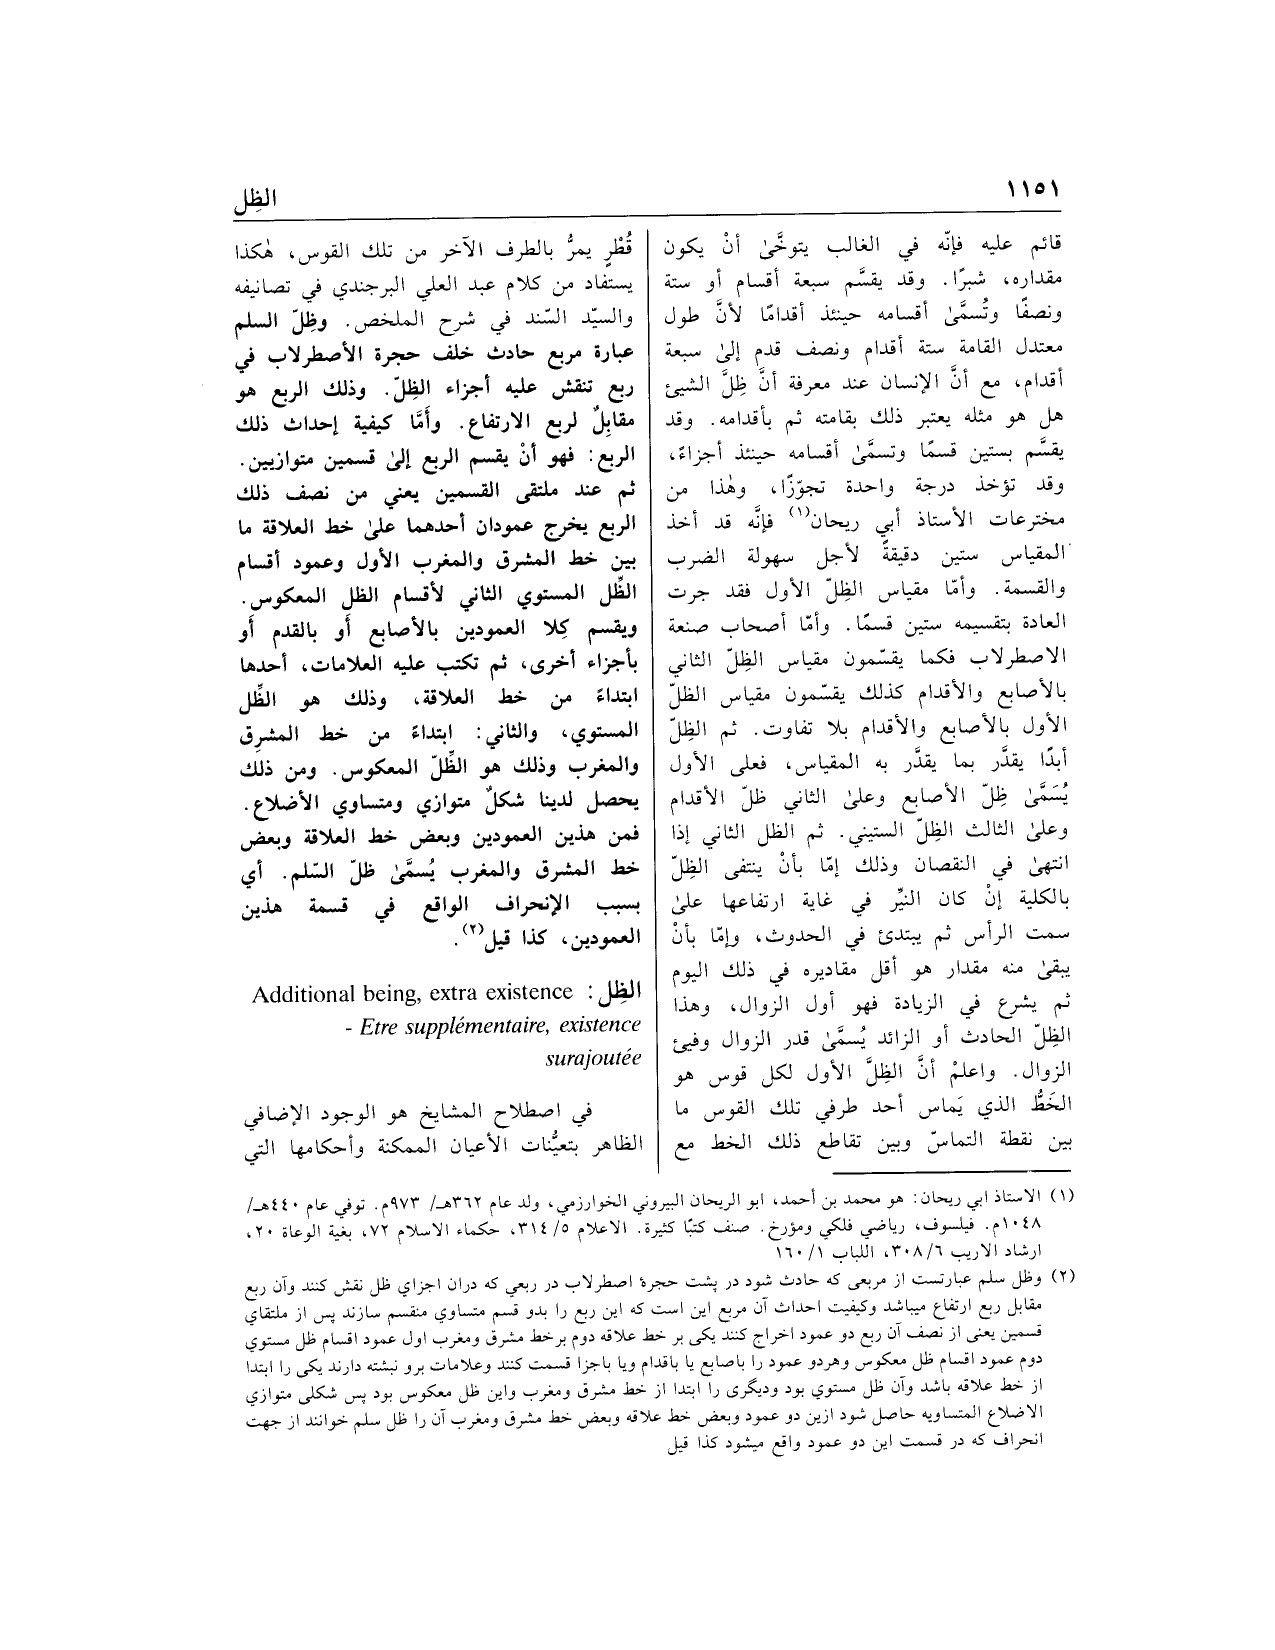 ١١٥١
الظِل
قائم عليه فإنّه في الغالب يتوخَّىٰ أنْ يكون
مقداره، شبرًا. وقد يقسَّم سبعة أقسام أو ستة
ونصفًا وتُسمَّىٰ أقسامه حينئذ أقدامًا لأنَّ طول
معتدل القامة ستة أقدام ونصف قدم إلىٰ سبعة
أقدام، مع أنَّ الإنسان عند معرفة أنَّ ظِلَّ الشيئ
هل هو مثله يعتبر ذلك بقامته ثم بأقدامه. وقد
يقسَّم بستين قسمًا وتسمَّىٰ أقسامه حينئذ أجزاءً،
وقد تؤخذ درجة واحدة تجوّزًا، وهٰذا من
مخترعات الأستاذ أبي ريحان(١) فإنَّه قد أخذ
المقياس ستين دقيقةً لأجل سهولة الضرب
والقسمة. وأمّا مقياس الظِلّ الأول فقد جرت
العادة بتقسيمه ستين قسمًا. وأمّا أصحاب صنعة
الاصطرلاب فكما يقسّمون مقياس الظِلّ الثاني
بالأصابع والأقدام كذلك يقسّمون مقياس الظلّ
الأول بالأصابع والأقدام بلا تفاوت. ثم الظِلّ
أبدًا يقدَّر بما يقدَّر به المقياس، فعلى الأول
يُسَمَّىٰ ظِلّ الأصابع وعلىٰ الثاني ظلّ الأقدام
وعلىٰ الثالث الظِلّ الستيني. ثم الظل الثاني إذا
انتهىٰ في النقصان وذلك إمّا بأنْ ينتفى الظِلّ
بالكلية إنْ كان النيِّر في غاية ارتفاعها علىٰ
سمت الرأس ثم يبتدئ في الحدوث، وإمّا بأنْ
يبقىٰ منه مقدار هو أقل مقاديره في ذلك اليوم
ثم يشرع في الزيادة فهو أول الزوال، وهذا
الظِلّ الحادث أو الزائد يُسمَّىٰ قدر الزوال وفيئ
الزوال. واعلمْ أنَّ الظِلَّ الأول لكل قوس هو
الخَطُّ الذي يَماس أحد طرفي تلك القوس ما
بين نقطة التماسّ وبين تقاطع ذلك الخط مع
قُطْرٍ يمرُّ بالطرف الآخر من تلك القوس، هٰكذا
يستفاد من كلام عبد العلي البرجندي في تصانيفه
والسيّد السَّند في شرح الملخص. وظِلّ السلم
عبارة مربع حادث خلف حجرة الأصطرلاب في
ربع تنقش عليه أجزاء الظِلّ. وذلك الربع هو
مقابِلٌ لربع الارتفاع. وأمَّا كيفية إحداث ذلك
الربع: فهو أنْ يقسم الربع إلىٰ قسمين متوازيين.
ثم عند ملتقى القسمين يعني من نصف ذلك
الربع يخرج عمودان أحدهما علىٰ خط العلاقة ما
بين خط المشرق والمغرب الأول وعمود أقسام
الظِّل المستوي الثاني لأقسام الظل المعكوس.
ويقسم كِلا العمودين بالأصابع أو بالقدم أو
بأجزاء أخرى، ثم تكتب عليه العلامات، أحدها
ابتداءً من خط العلاقة، وذلك هو الظِّل
المستوي، والثاني: ابتداءً من خط المشرق
والمغرب وذلك هو الظِّلّ المعكوس. ومن ذلك
يحصل لدينا شكلٌ متوازي ومتساوي الأضلاع.
فمن هذين العمودين وبعض خط العلاقة وبعض
خط المشرق والمغرب يُسمَّىٰ ظلّ السّلم. أي
بسبب الإنحراف الواقع في قسمة هذين
العمودين، كذا قيل(٢).
الظِل: Additional being, extra existence
- Etre supplémentaire, existence
surajoutée
في اصطلاح المشايخ هو الوجود الإضافي
الظاهر بتعيُّنات الأعيان الممكنة وأحكامها التي
(١) الاستاذ ابي ريحان: هو محمد بن أحمد، ابو الريحان البيروني الخوارزمي، ولد عام ٣٦٢هـ/ ٩٧٣م. توفي عام ٤٤٠هـ/
١٠٤٨م. فيلسوف، رياضي فلكي ومؤرخ. صنف كتبًا كثيرة. الاعلام ٥/ ٣١٤، حكماء الاسلام ٧٢، بغية الوعاة ٢٠،
ارشاد الاريب ٦/ ٣٠٨، اللباب ١/ ١٦٠
(٢) وظل سلم عبارتست از مربعى كه حادث شود در پشت حجرهٔ اصطرلاب در ربعي كه دران اجزاي ظل نقش كنند وآن ربع
مقابل ربع ارتفاع ميباشد وكيفيت احداث آن مربع اين است كه اين ربع را بدو قسم متساوي منقسم سازند پس از ملتقاي
قسمين يعنى از نصف آن ربع دو عمود اخراج كنند يكى بر خط علاقه دوم برخط مشرق ومغرب اول عمود اقسام ظل مستوي
دوم عمود اقسام ظل معكوس وهردو عمود را باصابع يا باقدام ويا باجزا قسمت كنند وعلامات برو نبشته دارند يكى را ابتدا
از خط علاقه باشد وآن ظل مستوي بود وديگرى را ابتدا از خط مشرق ومغرب واين ظل معكوس بود پس شكلى متوازي
الاضلاع المتساويه حاصل شود ازين دو عمود وبعض خط علاقه وبعض خط مشرق ومغرب آن را ظل سلم خوانند از جهت
انحراف كه در قسمت اين دو عمود واقع ميشود كذا قيل